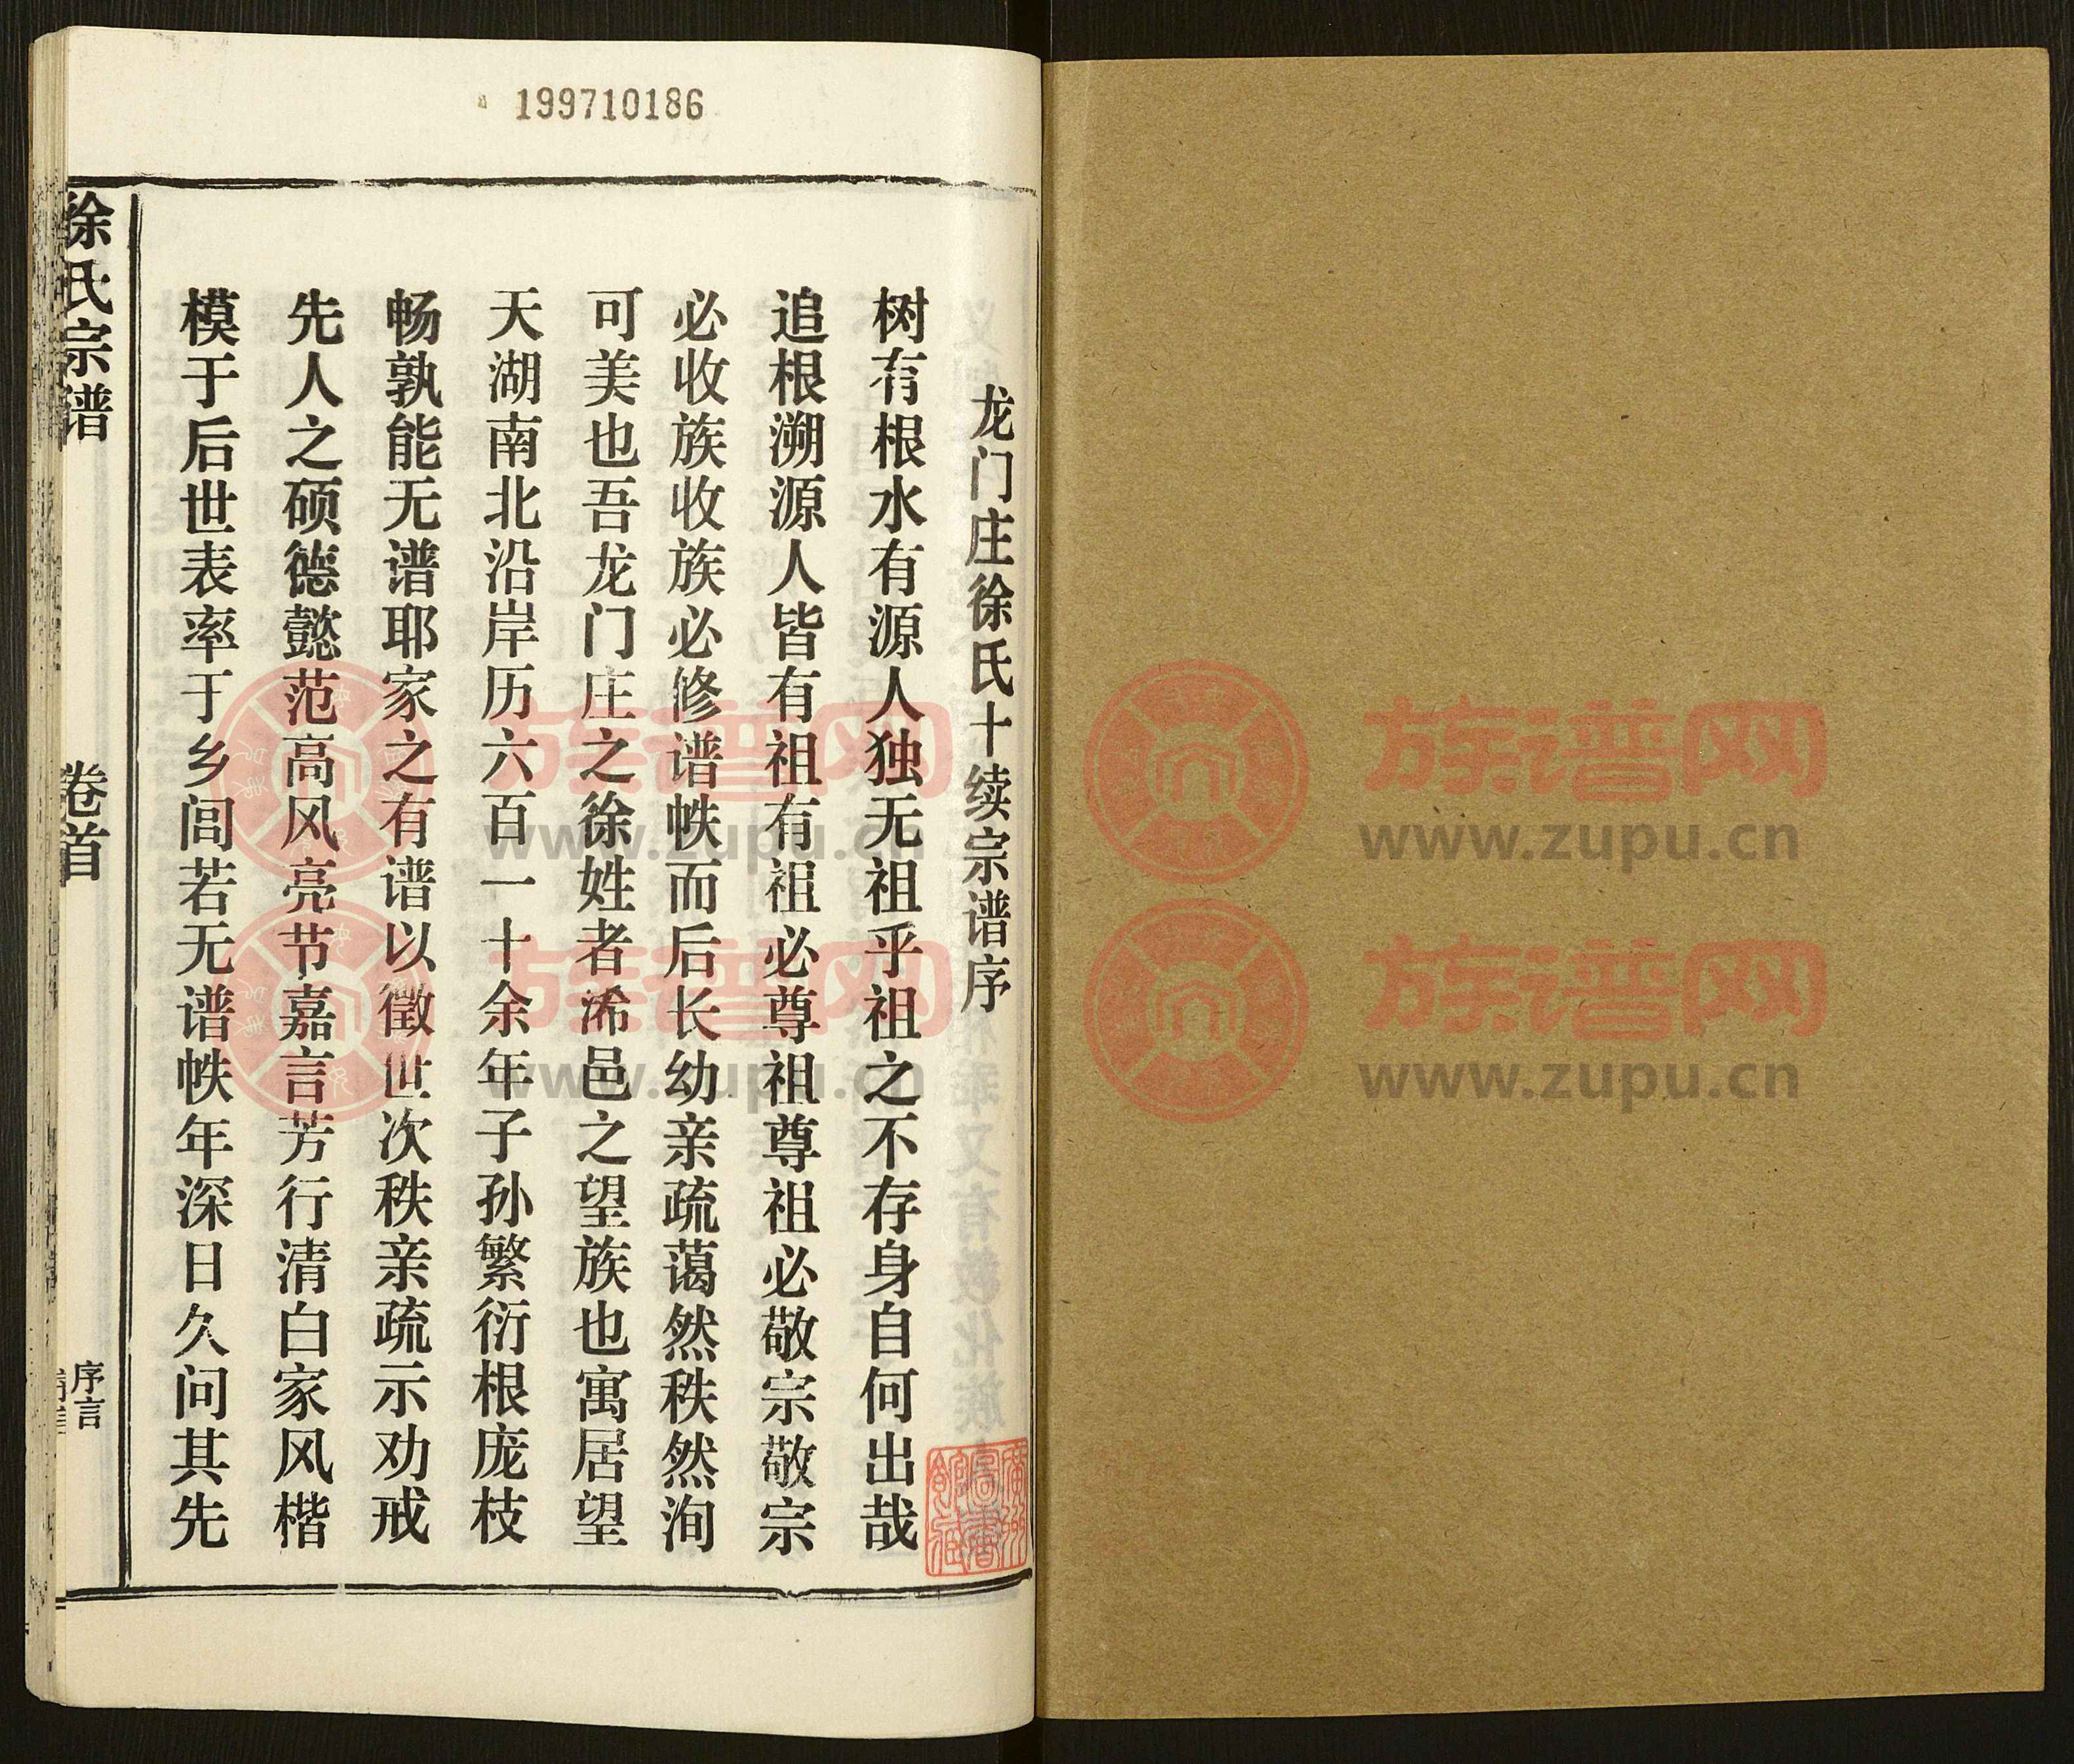 199710186
龙门庄徐氏十续宗谱序
树有根水有源人独无祖乎祖之不存身自何出哉
追根溯源人皆有祖有祖必尊祖尊祖必敬宗敬宗
必收族收族必修谱帙而后长幼亲疏蔼然秩然洵
可美也吾龙门庄之徐姓者浠邑之望族也寓居望
天湖南北沿岸历六百一十余年子孙繁衍根庞枝
畅孰能无谱耶家之有谱以徵世次秩亲疏示劝戒
先人之硕德懿范高风亮节嘉言芳行清白家风楷
模于后世表率于乡闾若无谱帙年深日久问其先
徐氏宗谱
卷首
序言
族谱网
www.zupu.cn
族谱网
www.zupu.cn
族谱网
www.zupu.cn
族谱网
www.zupu.cn